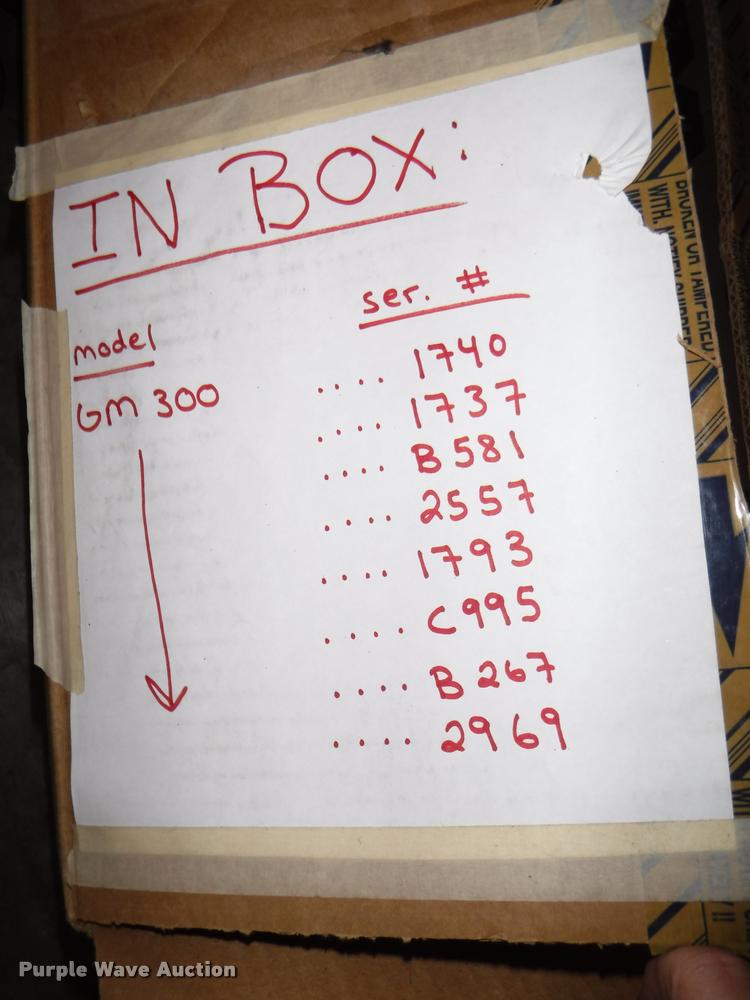 IN BOX:
model
ser. #
GM 300
.... 1740
.... 1737
.... B581
.... 2557
.... 1793
.... C995
.... B267
.... 2969
BROKEN OR TAMPERED
WITH, NOTIFY
Purple Wave Auction